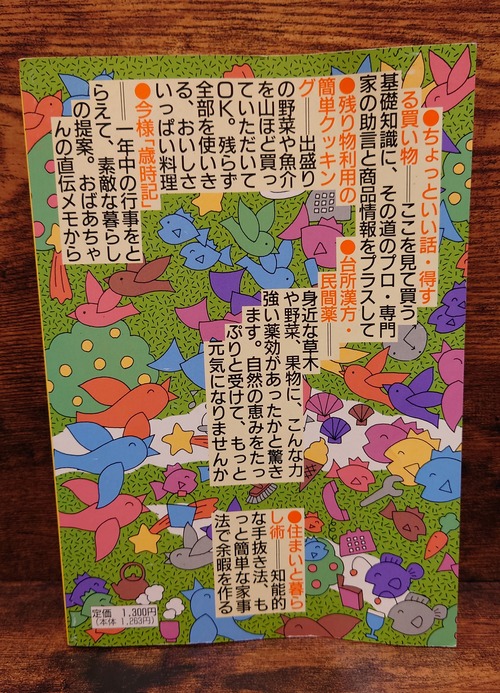 ●ちょっといい話・得す
る買い物――ここを見て買う
基礎知識に、その道のプロ・専門
家の助言と商品情報をプラスして
●残り物利用の
簡単クッキン
グ――出盛り
の野菜や魚介
を山ほど買っ
ていただいて
OK。残らず
全部を使いき
る、おいしさ
いっぱい料理
●今様「歳時記」
――一年中の行事をと
らえて、素敵な暮らし
の提案。おばあちゃ
んの直伝メモから
●台所漢方・
民間薬――
身近な草木
や野菜、果物に、こんな力
強い薬効があったかと驚き
ます。自然の恵みをたっ
ぷりと受けて、もっと
元気になりませんか
●住まいと暮ら
し術――知能的
な手抜き法、も
っと簡単な家事
法で余暇を作る
定価 1,300円
(本体 1,263円)